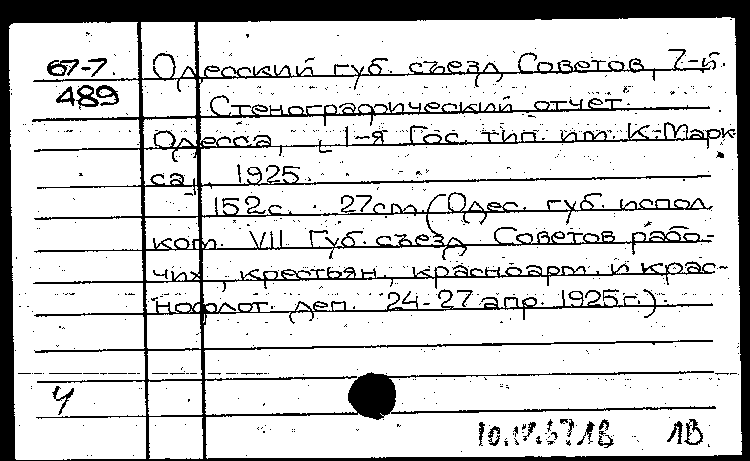 67-7. Одесский губ. съезд Советов, 7-й.
489 Стенографический отчет.
Одесса, [1-я Гос. тип. им. К. Марк-
са], 1925.
152 с. 27 cm. (Одес. губ. испол.
ком. VII Губ. съезд Советов рабо-
чих, крестьян., красноарм. и крас-
нофлот. деп. 24-27 апр. 1925 г.).
Ч
1В